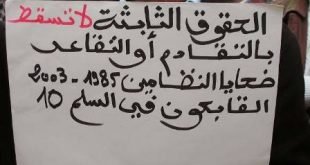 الحقوق الثابتة لا تسقط
بالتقادم أو التقاعد
ضحايا النظامين 1985 - 2003
القابعون في السلم 10